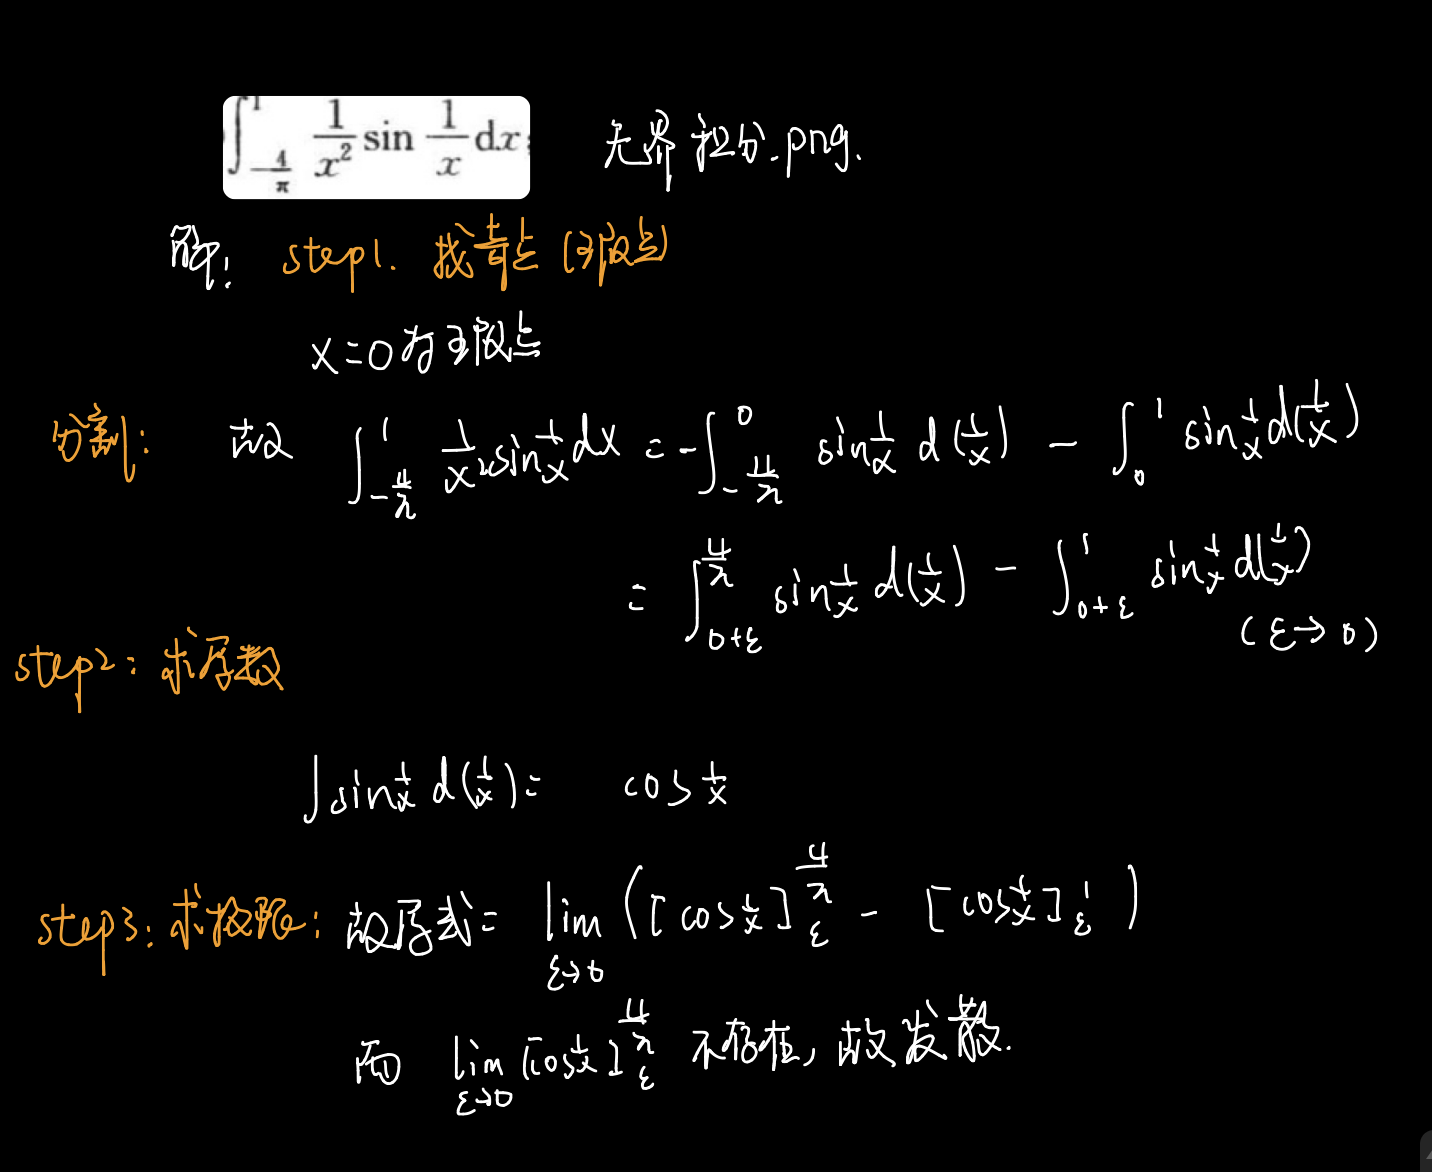 ∫_{-4/π}^{1} 1/x² sin 1/x dx; 无界积分.png.
解: step1. 找奇点 (瑕点)
x=0为瑕点
分割: 故 ∫_{-4/π}^{1} 1/x² sin 1/x dx = -∫_{-4/π}^{0} sin 1/x d(1/x) - ∫_{0}^{1} sin 1/x d(1/x)
= ∫_{0+ε}^{4/π} sin 1/x d(1/x) - ∫_{0+ε}^{1} sin 1/x d(1/x)
(ε→0)
step2: 求原函数
∫ sin 1/x d(1/x) = cos 1/x
step3: 求极限: 故原式 = lim_{ε→0} ([cos 1/x]_{ε}^{4/π} - [cos 1/x]_{ε}^{1})
而 lim_{ε→0} [cos 1/x]_{ε}^{4/π} 不存在, 故发散.